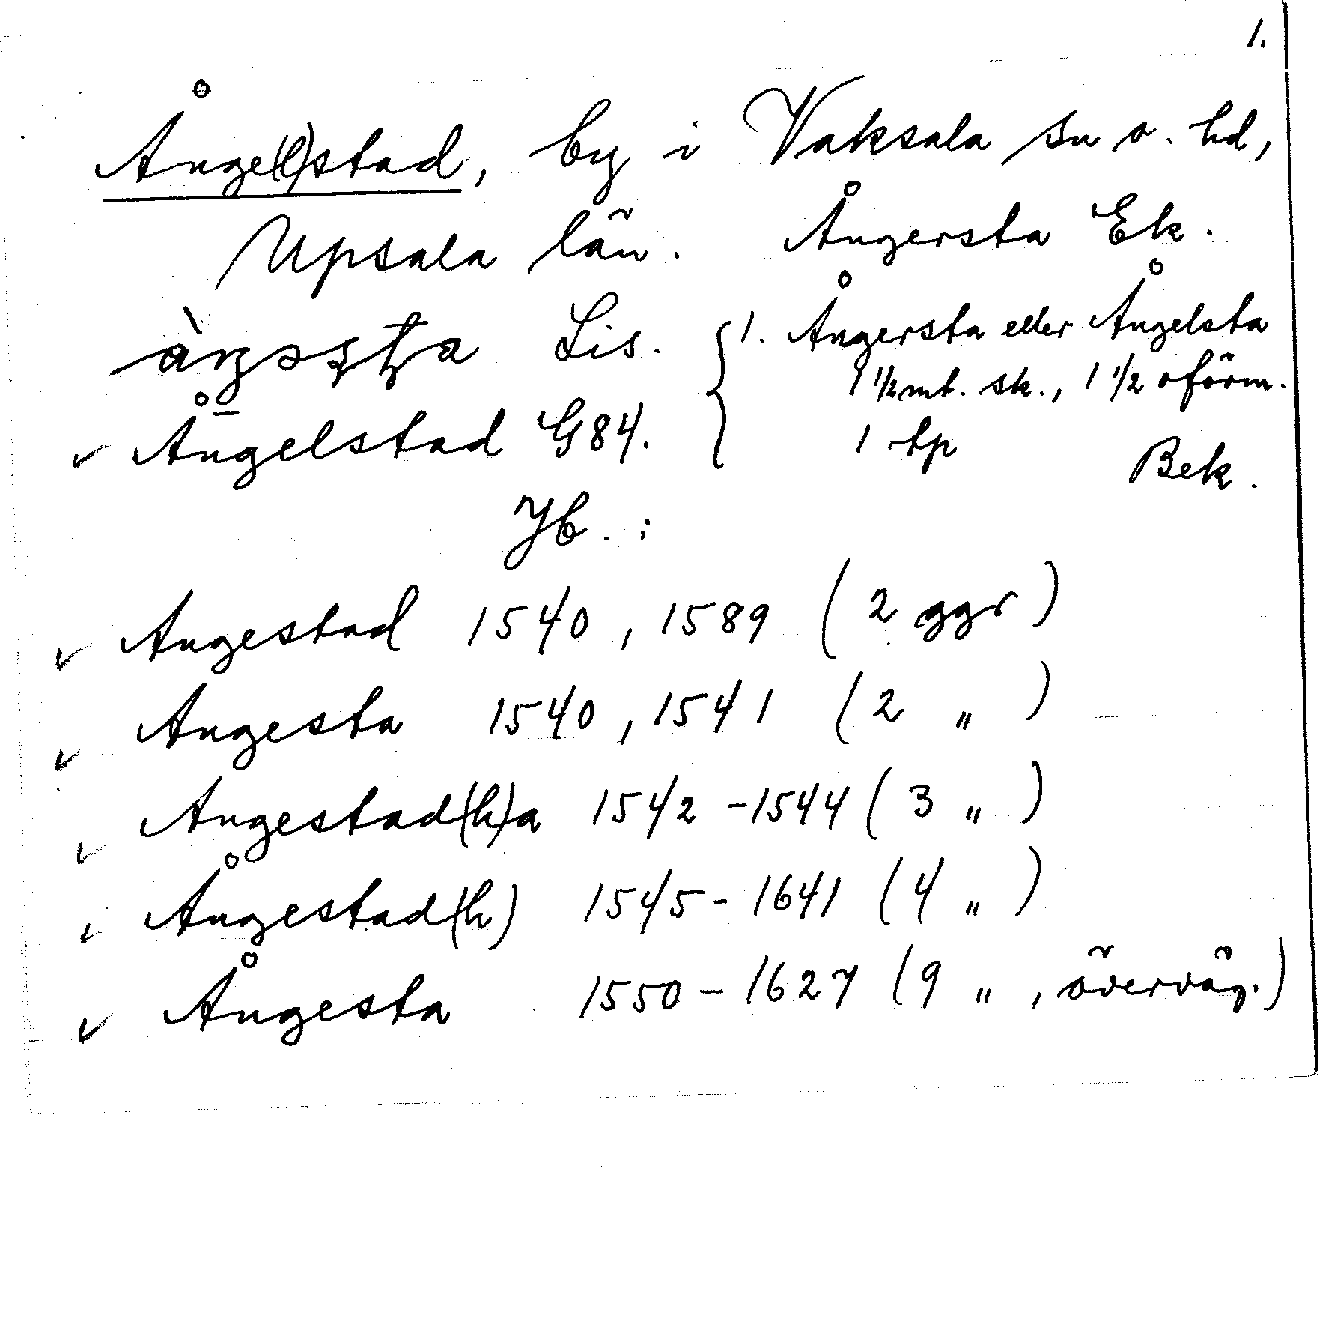 1.
Ånge(l)stad, by i Vaksala sn o. hd,
Upsala län. Ångersta Ek.
Lis. { 1. Ångersta eller Ångelsta
1 1/2 mt. sk., 1 1/2 oförm.
✓ Ångelstad G84. 1 tp Bek.
Jb. :
✓ Angestad 1540, 1589 (2 ggr)
✓ Angesta 1540, 1541 (2 „ )
✓ Angestad(h)a 1542-1544 (3 „ )
✓ Ångestad(h) 1545-1641 (4 „ )
✓ Ångesta 1550-1627 (9 „ , överväg.)